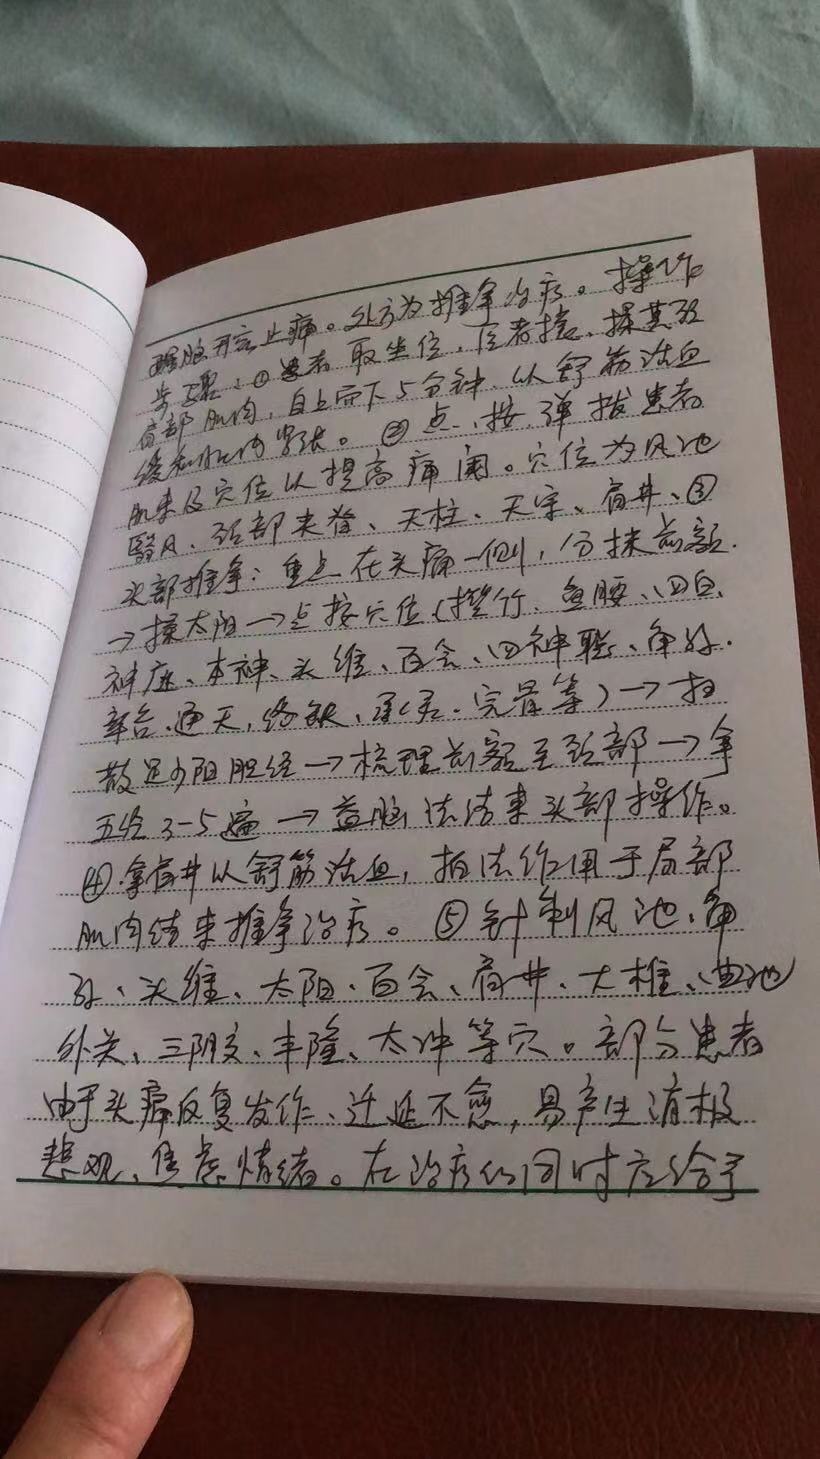 醒脑开窍止痛。处方为推拿治疗。操作
步骤、①患者取坐位，医者揉、揉其颈
肩部肌肉，自上而下5分钟，以舒筋活血
缓和肌肉紧张。②点、按、弹拨患者
肌束及穴位以提高痛阈。穴位为风池
翳风、颈部夹脊、天柱、天宗、肩井、③
头部推拿：重点在头痛一侧，分抹前额.
→揉太阳→点按穴位（攒竹、鱼腰、四白、
神庭、本神、头维、百会、四神聪、角孙.
率谷.通天,络却、承灵.完骨等）→扫
散足少阳胆经→梳理前额至颈部→拿
五经3-5遍→益脑法结束头部操作。
④.拿肩井以舒筋活血，拍法作用于局部
肌肉结束推拿治疗。⑤针刺风池、角
孙、头维、太阳、百会、肩井、大椎、曲池
外关、三阴交、丰隆、太冲等穴。部分患者
由于头痛反复发作、迁延不愈，易产生消极
悲观、焦虑情绪。在治疗的同时应给予